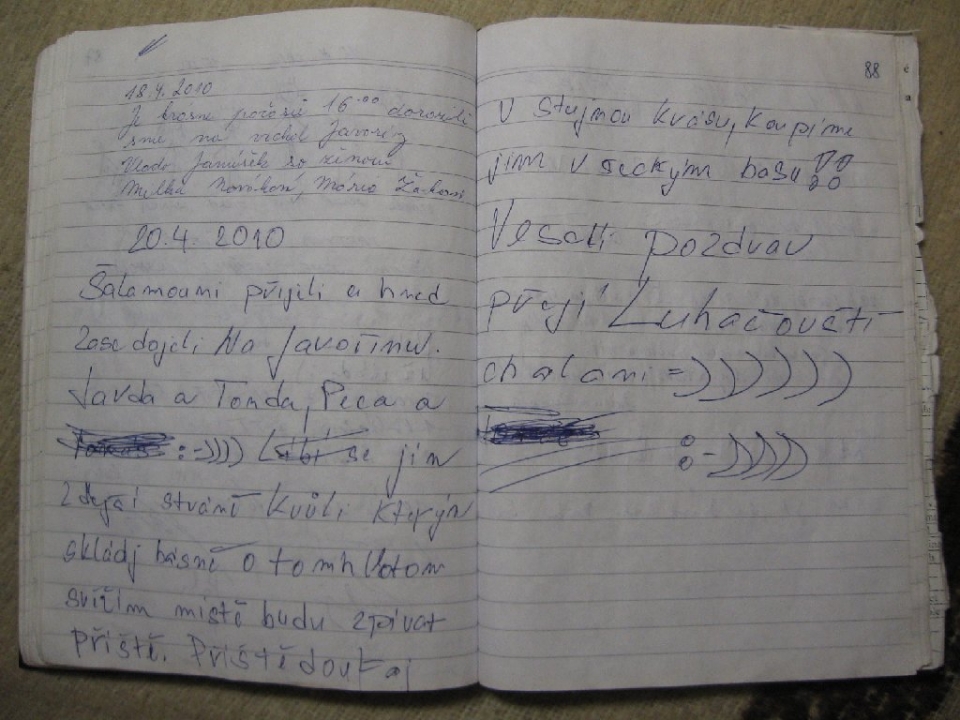 18.4.2010
Za krásne počasie 16.00 dorazili
sme na vrchol Javoriny
Vlado Janušek so ženou
Melka Nováková, Mário
20.4. 2010
Šalamouni přijeli a hned
zase dojeli Na Javořinu.
Javda a Tonda, Peca a
:-)))) Líbí se jim
zdejší stráně kvůli kterým
skládj básně o tomhletom
svižím místě budu zpívat
příště. Příště doufaj
88
V stejnou krásu, koupíme
jim všeckým basu!!
Veselí pozdrav
přejí Luhačovští
chalani =))))))
:-))))